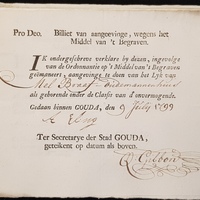 Pro Deo. Billiet van aangeevinge, wegens het
Middel van 't Begraven.
IK ondergeschreve verklare by dezen, ingevolge
van de Ordonnantie op 't Middel van 't Begraven
geëmaneert, aangevinge te doen van het Lyk van
als gehoorende onder de Classis van d'onvermogende.
Gedaan binnen GOUDA, den 9 July 1799
Ter Secretarye der Stad GOUDA,
geteikent op datum als boven.